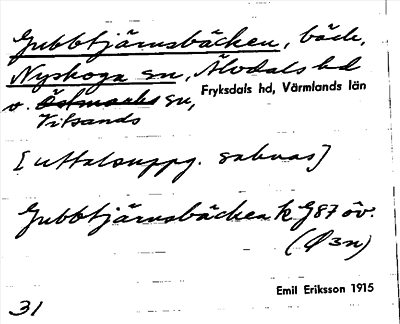 Gubbtjärnsbäcken, bäck,
Nyskoga sn, Älvdals hd
Fryksdals hd, Värmlands län
o. Östmarks sn,
Vitsands
[uttalsuppg. saknas]
Gubbtjärnsbäcken k G87 öv.
(Ø3n)
Emil Eriksson 1915
31